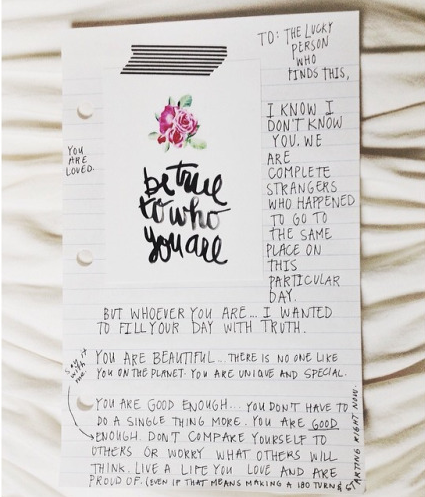 TO: THE LUCKY
PERSON
WHO
FINDS THIS,
I KNOW I
DON'T KNOW
YOU. WE
ARE
COMPLETE
STRANGERS
WHO HAPPENED
TO GO TO
THE SAME
PLACE ON
THIS
PARTICULAR
DAY.
YOU
ARE
LOVED.
be true
to who
you are
BUT WHOEVER YOU ARE... I WANTED
TO FILL YOUR DAY WITH TRUTH.
YOU ARE BEAUTIFUL... THERE IS NO ONE LIKE
YOU ON THE PLANET. YOU ARE UNIQUE AND SPECIAL.
Say it
with
me.
YOU ARE GOOD ENOUGH... YOU DON'T HAVE TO
DO A SINGLE THING MORE. YOU ARE GOOD
ENOUGH. DON'T COMPARE YOURSELF TO
OTHERS OR WORRY WHAT OTHERS WILL
THINK. LIVE A LIFE YOU LOVE AND ARE
PROUD OF. (EVEN IF THAT MEANS MAKING A 180 TURN &
STARTING RIGHT NOW.